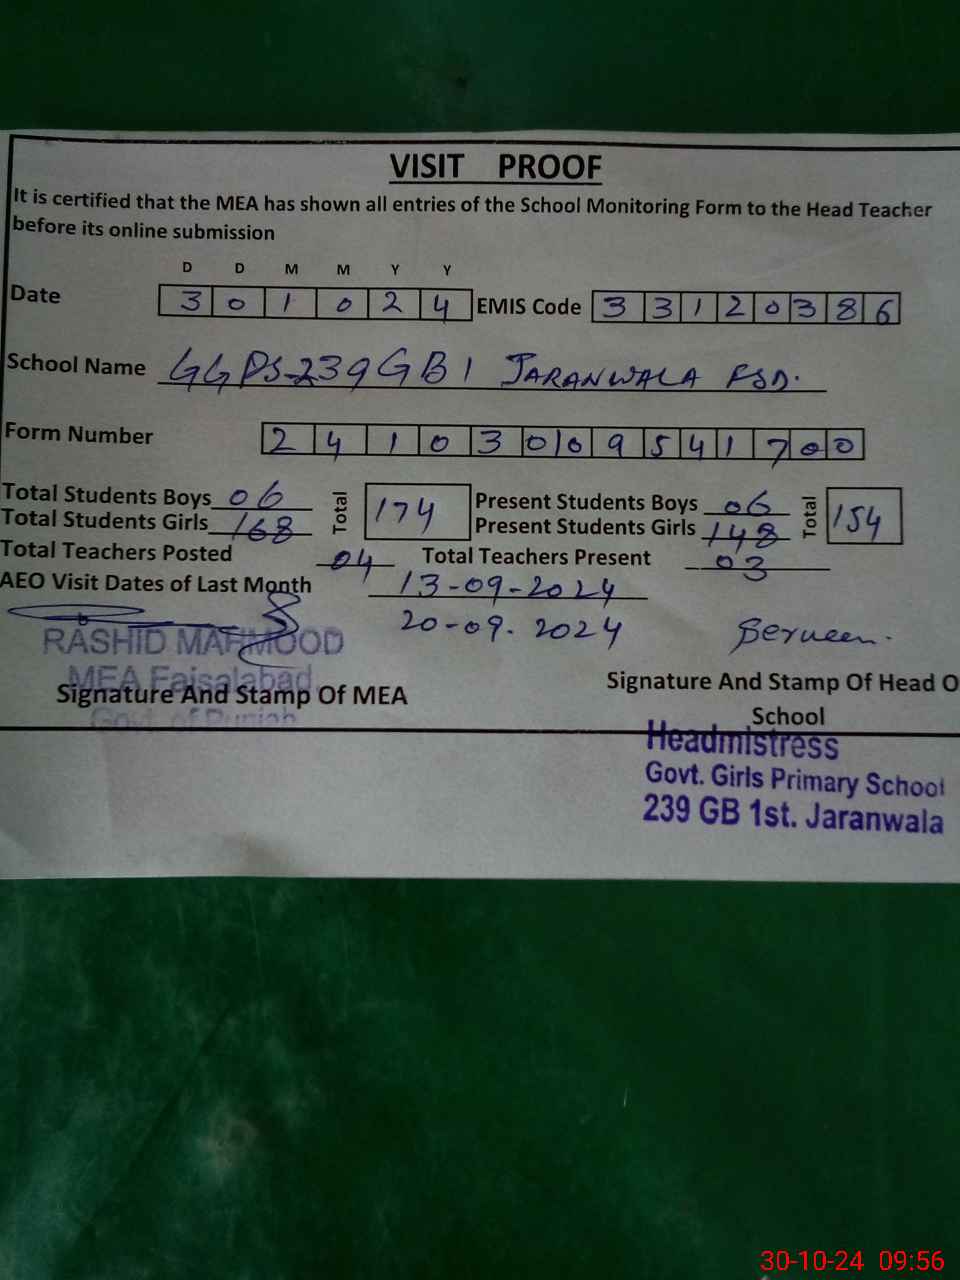 VISIT PROOF
It is certified that the MEA has shown all entries of the School Monitoring Form to the Head Teacher
before its online submission
D D M M Y Y
Date 3 0 1 0 2 4 EMIS Code 3 3 1 2 0 3 8 6
School Name GGPS-239GB1 JARANWALA FSD.
Form Number 2 4 1 0 3 0 0 9 5 4 1 7 0 0
Total Students Boys 06 Total 174 Present Students Boys 06 Total 154
Total Students Girls 168 Present Students Girls 148
Total Teachers Posted 04 Total Teachers Present 03
AEO Visit Dates of Last Month 13-09-2024
20-09-2024
RASHID MAHMOOD
MEA Faisalabad
Govt. of Punjab
Signature And Stamp Of MEA
Signature And Stamp Of Head O
School
Headmistress
Govt. Girls Primary School
239 GB 1st. Jaranwala
30-10-24 09:56